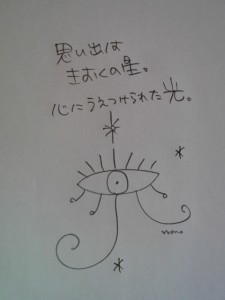 思い出は
きおくの星。
心にうえつけられた光。